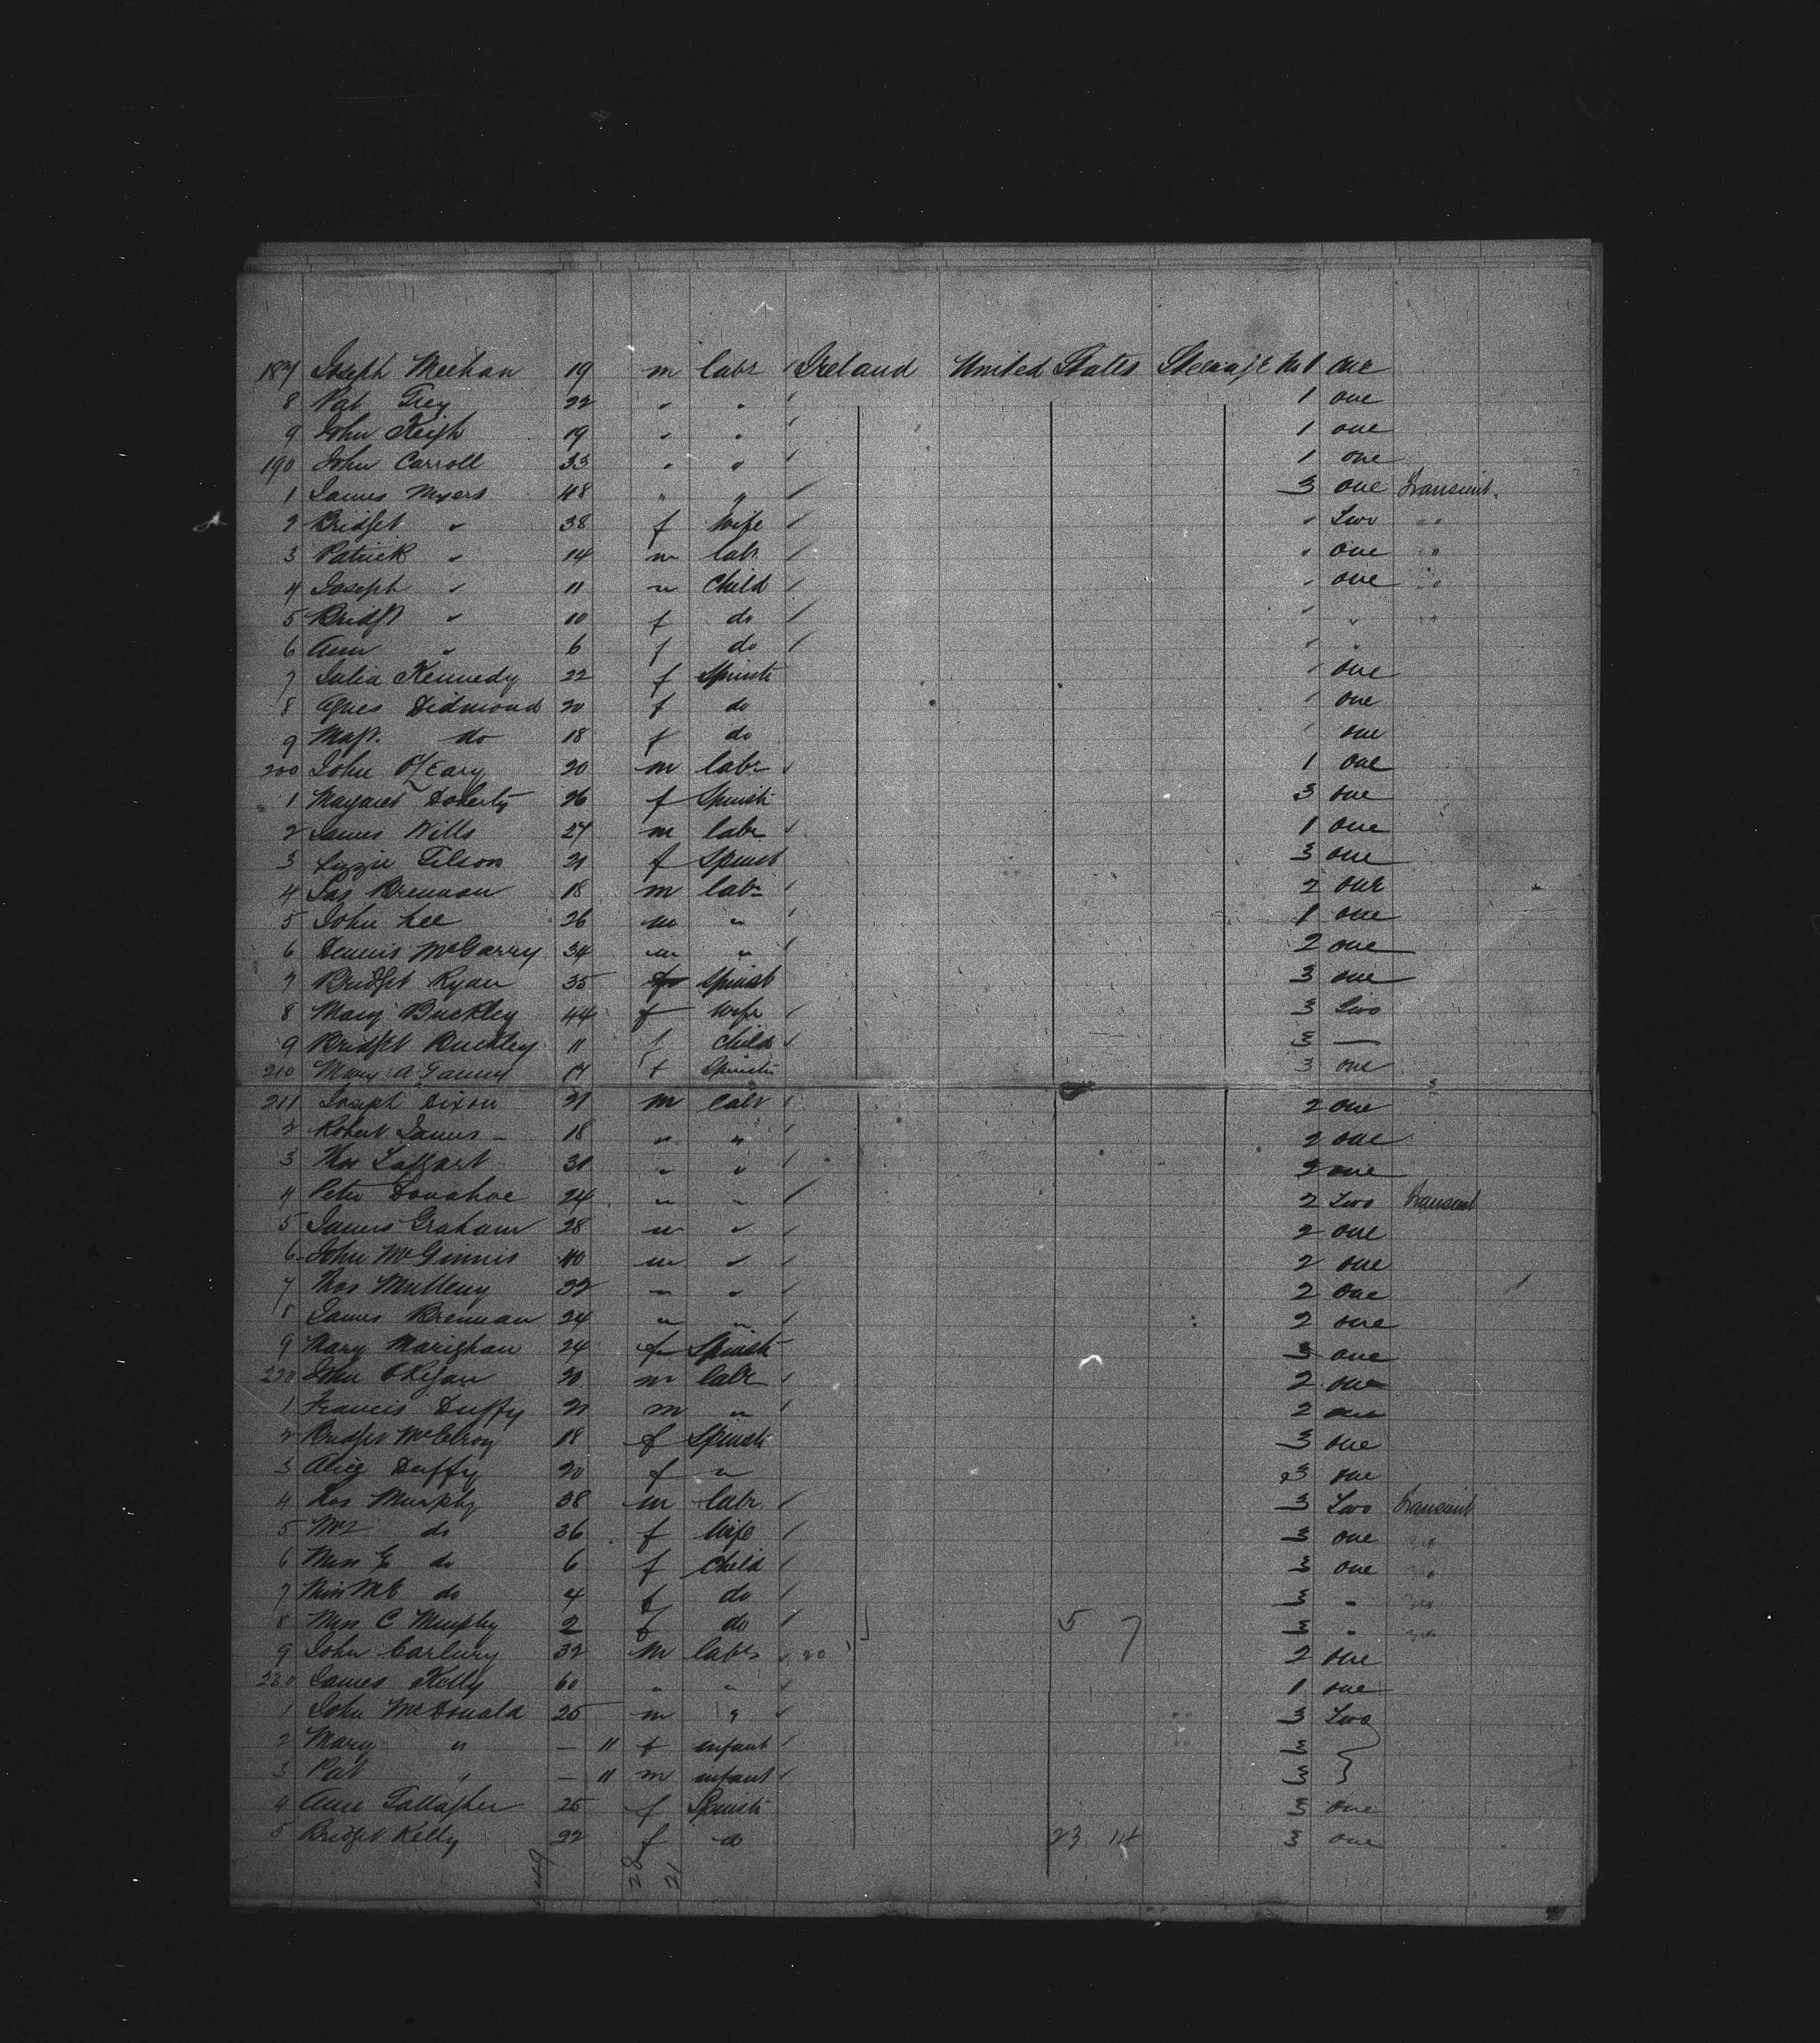 187 Joseph Meehan 19 m labr Ireland United States Steerage No 1 one
8 Pat Grey 22 " " 1 one
9 John Keigh 19 " " 1 one
190 John Carroll 33 " " 1 one
1 James Myers 48 " " 3 one Transient
2 Bridget " 38 f Wife " Two "
3 Patrick " 14 m labr " one "
4 Joseph " 11 m Child " one "
5 Bridgt " 10 f do " " "
6 Ann " 6 f do " "
7 Julia Kennedy 22 f Spinstr " one
8 Agnes Didmond 20 f do " one
9 Magt. do 18 f do " one
200 John O'Leary 20 m labr 1 one
1 Margaret Doherty 26 f Spinstr 3 one
2 James Wills 27 m labr 1 one
3 Lizzie Tilson 21 f Spinst 3 one
4 Jas Brennan 18 m labr 2 one
5 John Lee 26 m " 1 one
6 Dennis McGarry 34 m " 2 one
7 Bridget Ryan 35 f Spinst 3 one
8 Mary Buckley 44 f Wife 3 Two
9 Bridget Buckley 11 f Child 3 —
210 Mary A 17 f Spinstr 3 one
211 Joseph Dixon 21 m labr 2 one
2 Robert James 18 " " 2 one
3 Thos Taggart 31 " " 2 one
4 Peter Donahoe 24 " " 2 Two Transient
5 James Graham 28 m " 2 one
6 John McGinnis 40 m " 2 one
7 Thos Mulleny 32 " " 2 one
8 James Brennan 24 " " 2 one
9 Mary Marighan 24 f Spinstr 3 one
220 John 20 m labr 2 one
1 Francis Duffy 21 m " 2 one
2 Bridget McElroy 18 f Spinstr 3 one
3 Alice Duffy 20 f " 3 one
4 Murphy 38 m labr 3 Two Transient
5 Mrs do 36 f Wife 3 one
6 Miss E do 6 f Child 3 one
7 Miss M E do 4 f do 3 "
8 Miss C Murphy 2 f do 5 7 3 "
9 John Carbury 32 m labr 20 2 one
230 James Kelly 60 " " 1 one
1 John McDonald 25 m " 3 Two
2 Mary " — 11 f infant 3
3 Pat " — 11 m infant 3
4 Ann Gallagher 25 f Spinstr 3 one
5 Bridget Kelly 22 f do 23 14 3 one
49 28 21